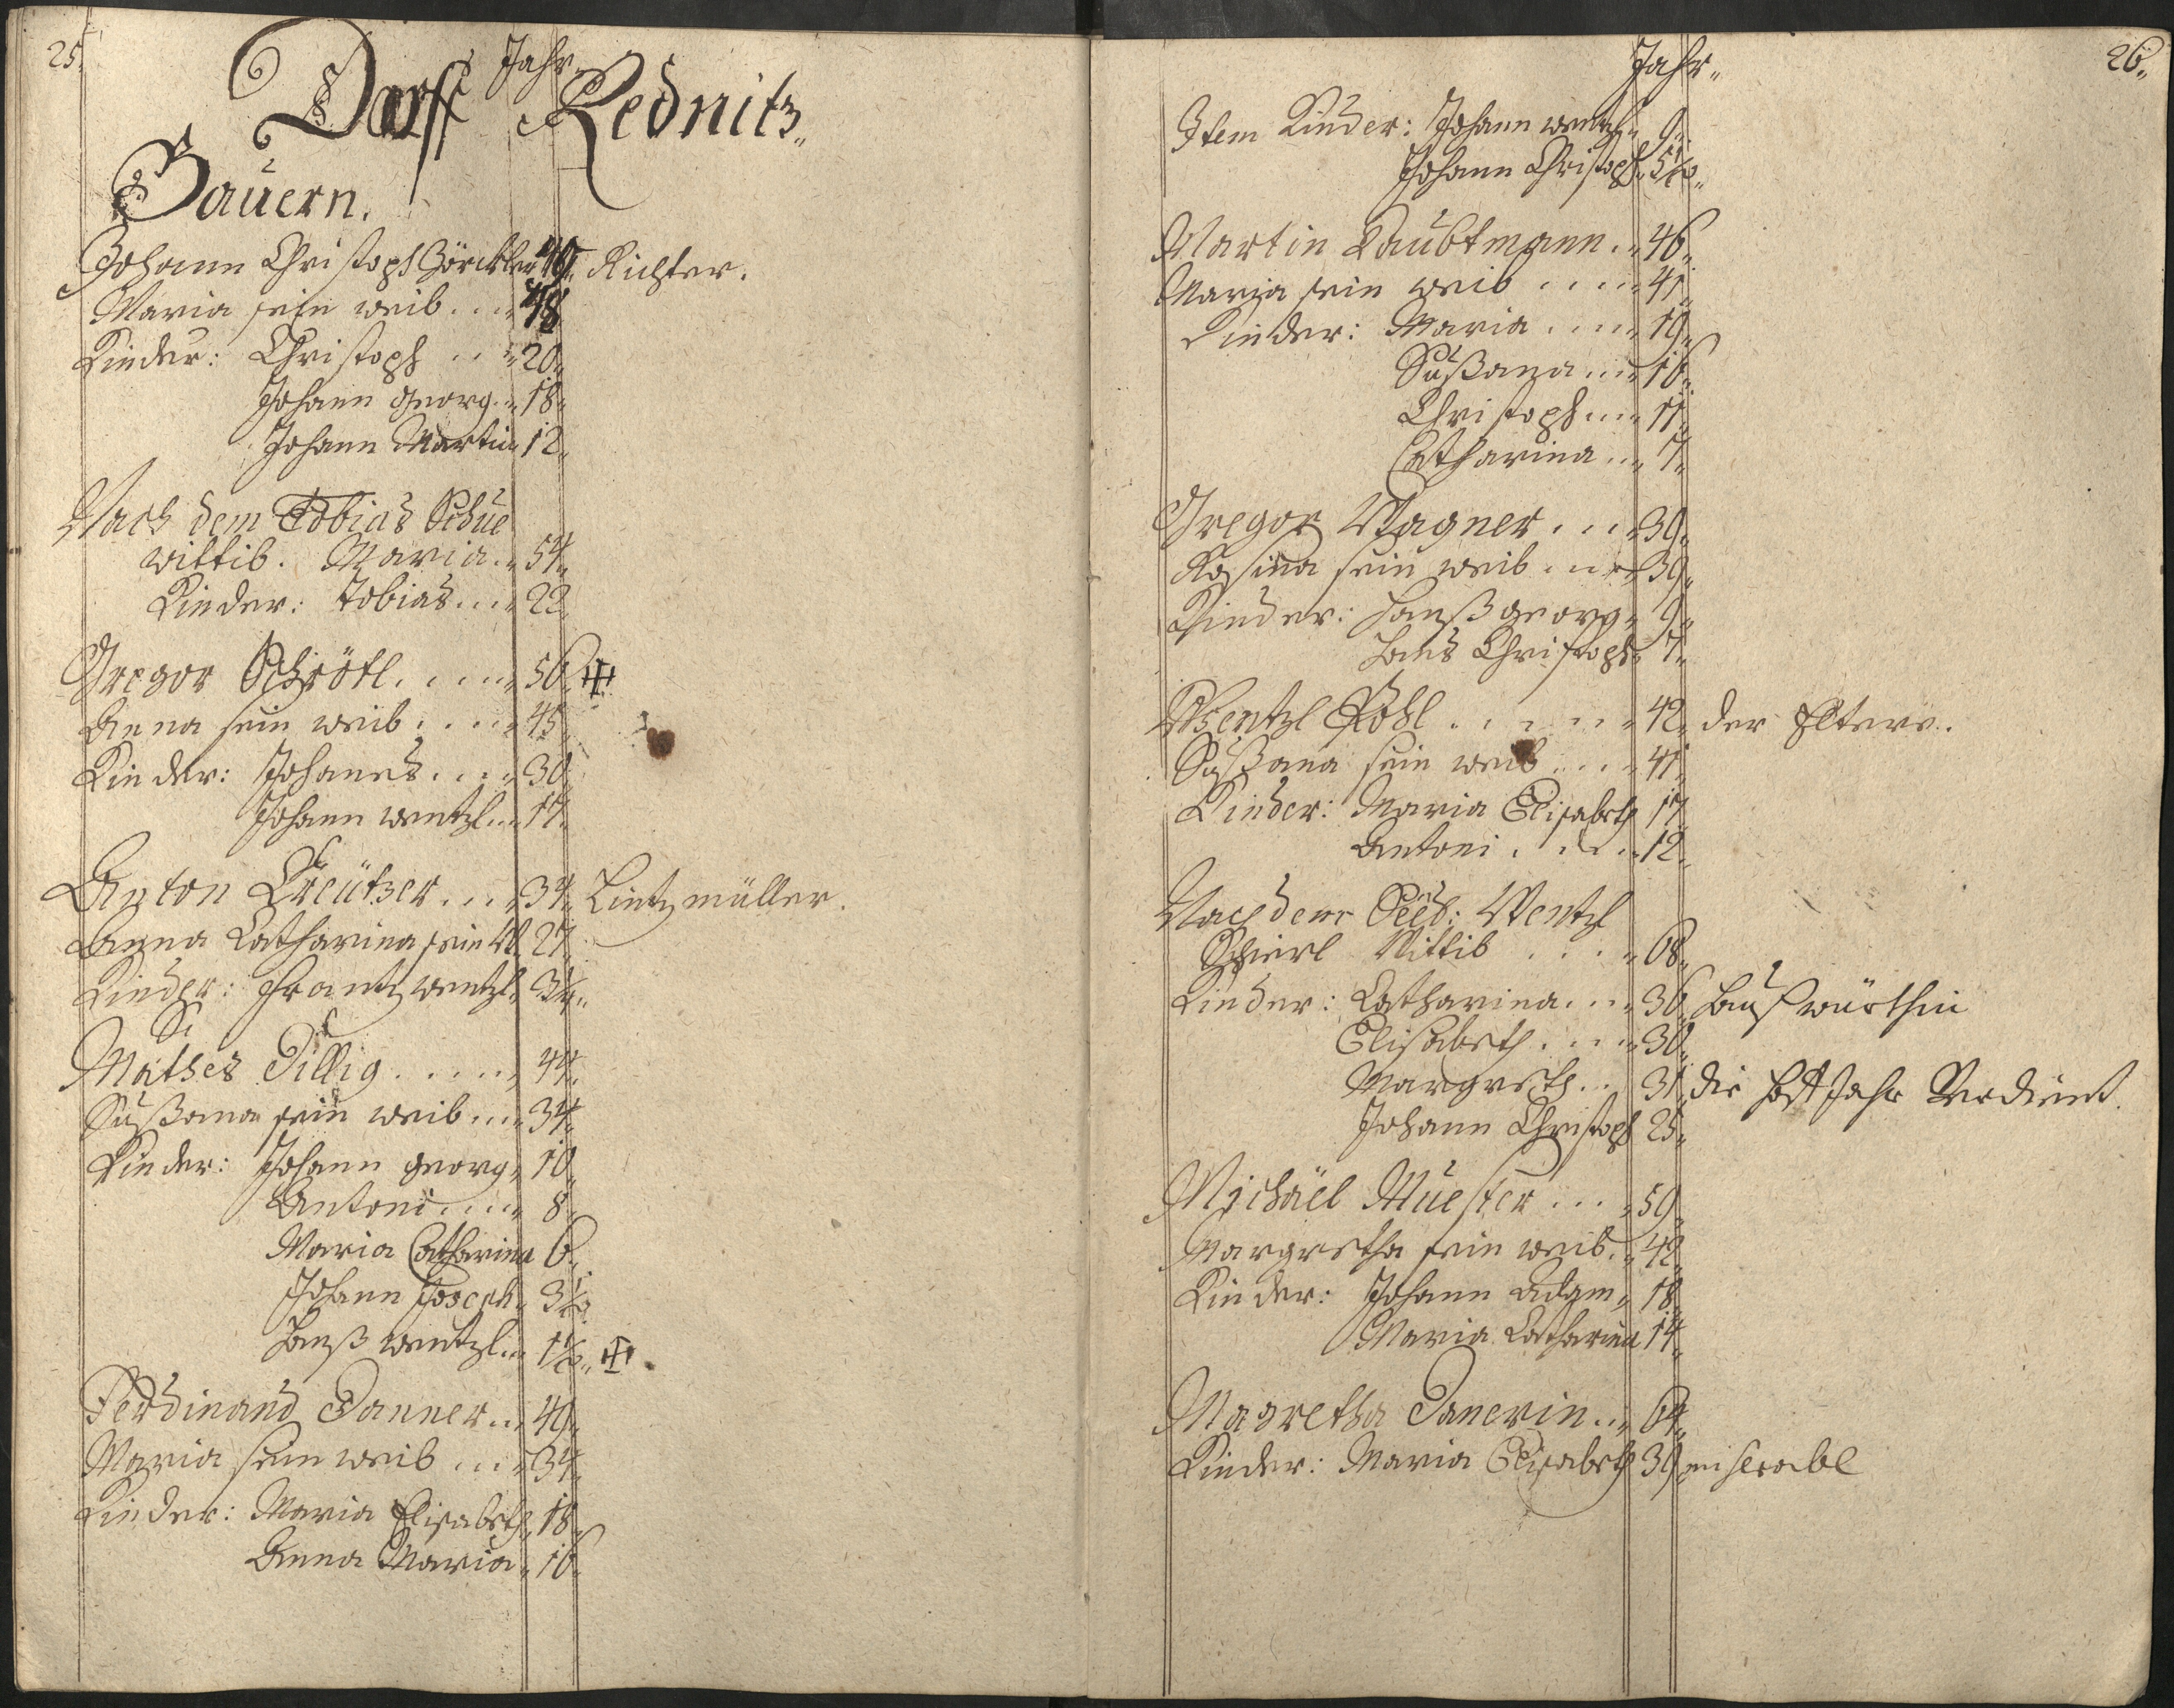 25.
Jahr.
Dorff Rednitz
Bauern.
Johann Christoph Görckler 49. Richter.
Maria sein weib 48
Kinder: Christoph 20.
Johann Georg 18.
Johann Martin 12.
Nach dem Tobias Schue
wittib. Maria 54.
Kinder: Tobias 22
Gregor Schrötl 56.
Anna sein weib 45
Kinder: Johanes 30.
Johann wentzl 14.
Anton Creützer 34. Lintzmüller.
Anna Catharina sein W. 27.
Kinder: Frantz wentzl 3/4.
Mathes Tillig 44.
Sußana sein weib 34.
Kinder: Johann georg 10
Antoni 8.
Maria Catharina 6.
Johann Joseph 3 1/2.
Hanß wentzl 1 1/2.
Ferdinand Danner 49.
Maria sein weib 34.
Kinder: Maria Elisabeth 18.
Anna Maria 16.
26.
Jahr.
Item Kinder: Johann wentzl 9.
Johann Christoph 5 1/2.
Martin Laubtmann 46.
Maria sein weib 41.
Kinder: Maria 19.
Sußana 16.
Christoph 11.
Catharina 7.
Gregor Wagner 39.
Rosina sein weib 39.
Kinder: Hanß georg 9.
Hans Christoph 7.
Wentzl Pohl 42. der Eltere.
Sußana sein weib 41.
Kinder: Maria Elisabeth 17.
Antoni 12.
Nach dem Seel: Wentzl
Schierl Wittib 68.
Kinder: Catharina 36. Haußwürthin
Elisabeth 30.
Margreth 31. die Hoff Jahr Verdient.
Johann Christoph 25.
Michäel Muester 59.
Margretha sein weib 42.
Kinder: Johann Adam 18.
Maria Catharina 14.
Magretha Danerin 64.
Kinder: Maria Elisabeth 39 miserabl